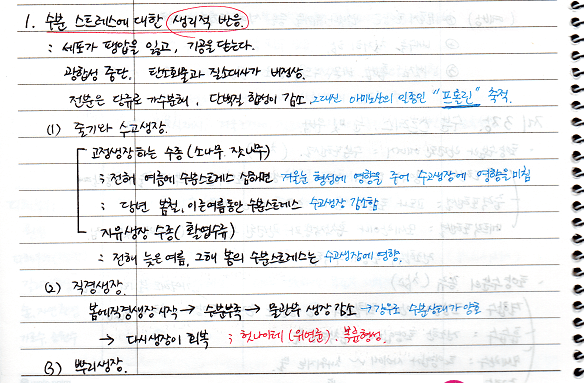 1. 수분 스트레스에 대한 생리적 반응.
: 세포가 팽압을 잃고, 기공을 닫는다.
광합성 중단, 탄소화물과 질소대사가 비정상.
전분은 당류로 가수분해, 단백질 합성이 감소 그대신 아미노산의 일종인 "프롤린" 축적.
(1) 줄기와 수고생장.
고정생장하는 수종 (소나무. 잣나무)
: 전해 여름에 수분스트레스 심하면 겨울눈 형성에 영향을 주어 수고생장에 영향을 미침
: 당년 봄철, 이른여름동안 수분스트레스 수고생장 감소함
자유생장 수종 (활엽수류)
: 전해 늦은 여름, 그해 봄의 수분스트레스는 수고생장에 영향.
(2) 직경생장.
봄에 직경생장 시작 → 수분부족 → 물관부 생장 감소 → 강우로 수분상태가 양호
→ 다시 생장이 회복 : 헛나이테 (위연륜). 복륜형성.
(3) 뿌리생장.